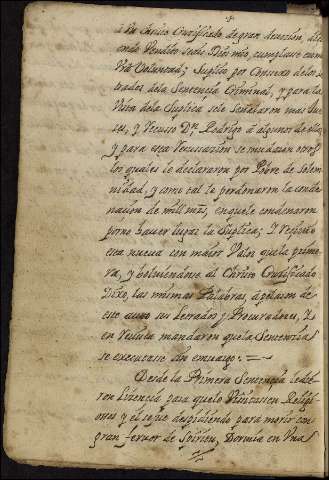 Un Christo Crucificado de gran devocion, dici
endo Bendito seais Dios mio, cumplase en mi
Vra Voluntad; Suplico por Consexo de los Le
trados dela Sentencia Criminal, y para la
Vista dela Suplica se le señalaron mas Jue
ses, y Recuso Dn. Rodrigo a algunos de ellos,
y para esta Recusacion se mudaron otros
los quales le declararon por Pobre de Solem
nidad, y como tal le perdonaron la conde
nacion de mill mrs, en que le condenaron
por no haver lugar la Suplica; Y Recivio
esta nueva con maior Valor que la prime
ra, y bolviendose al Christo Crucificado
Dixo, las mismas Palabras, apelaron de
este auto sus Letrados y Procuradores, Y
en Revista mandaron que la Sentencia
se executasse sin embargo. =
Desde la Primera Sentencia le die
ron Licencia para que le Visitassen Religi
osos y el se fue despidiendo para morir con
gran fervor de Spiritu, Dormia en Una